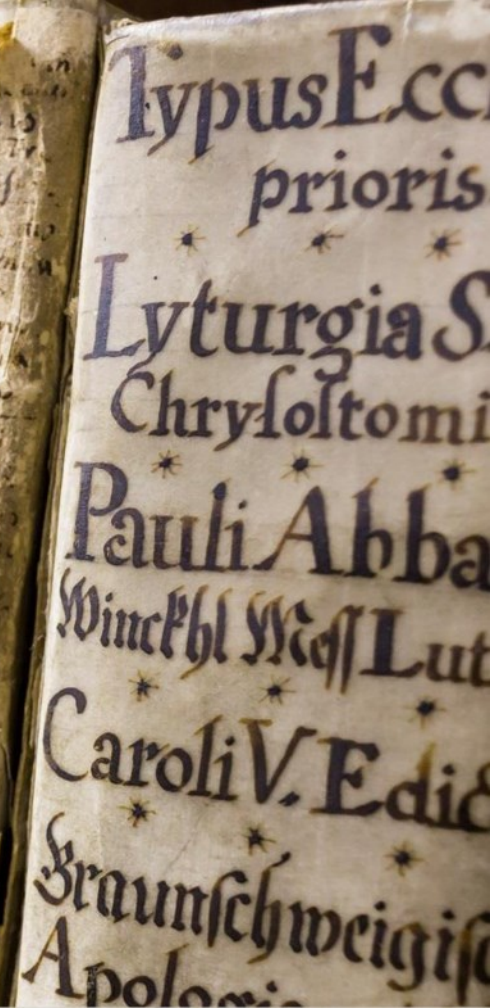 Typus Ecc
prioris
Lyturgia S.
Chryſoſtomi
Pauli Abba
Winckhl Meſſ Lut
Caroli V. Edic
Braunſchweigiſc
Apologia